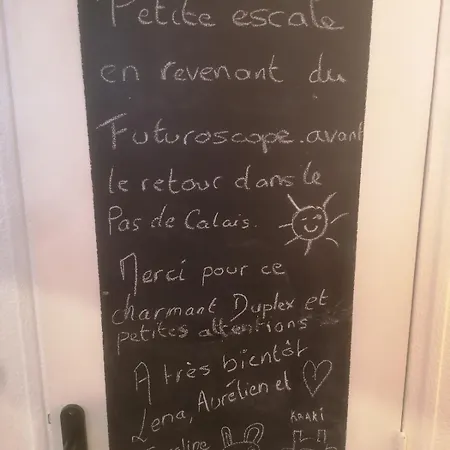 Petite escale
en revenant du
Futuroscope. avant
le retour dans le
Pas de Calais.
Merci pour ce
charmant Duplex et
petites attentions
A très bientôt
Lena, Aurélien et
KRAKI